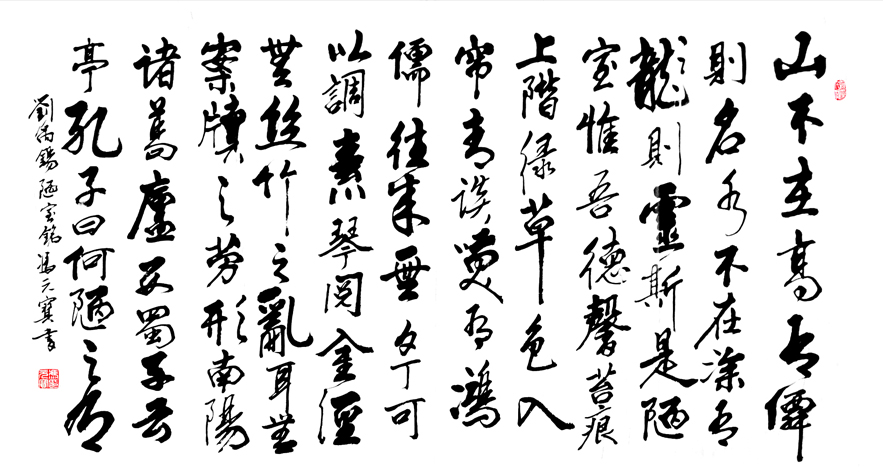 山不在高有僊
則名水不在深有
龍則靈斯是陋
室惟吾德馨苔痕
上階緑草色入
帘青談笑有鴻
儒往來無白丁可
以調素琴閱金經
無絲竹之亂耳無
案牘之勞形南陽
諸葛廬西蜀子云
亭孔子曰何陋之有
劉禹錫陋室銘馮元寶書